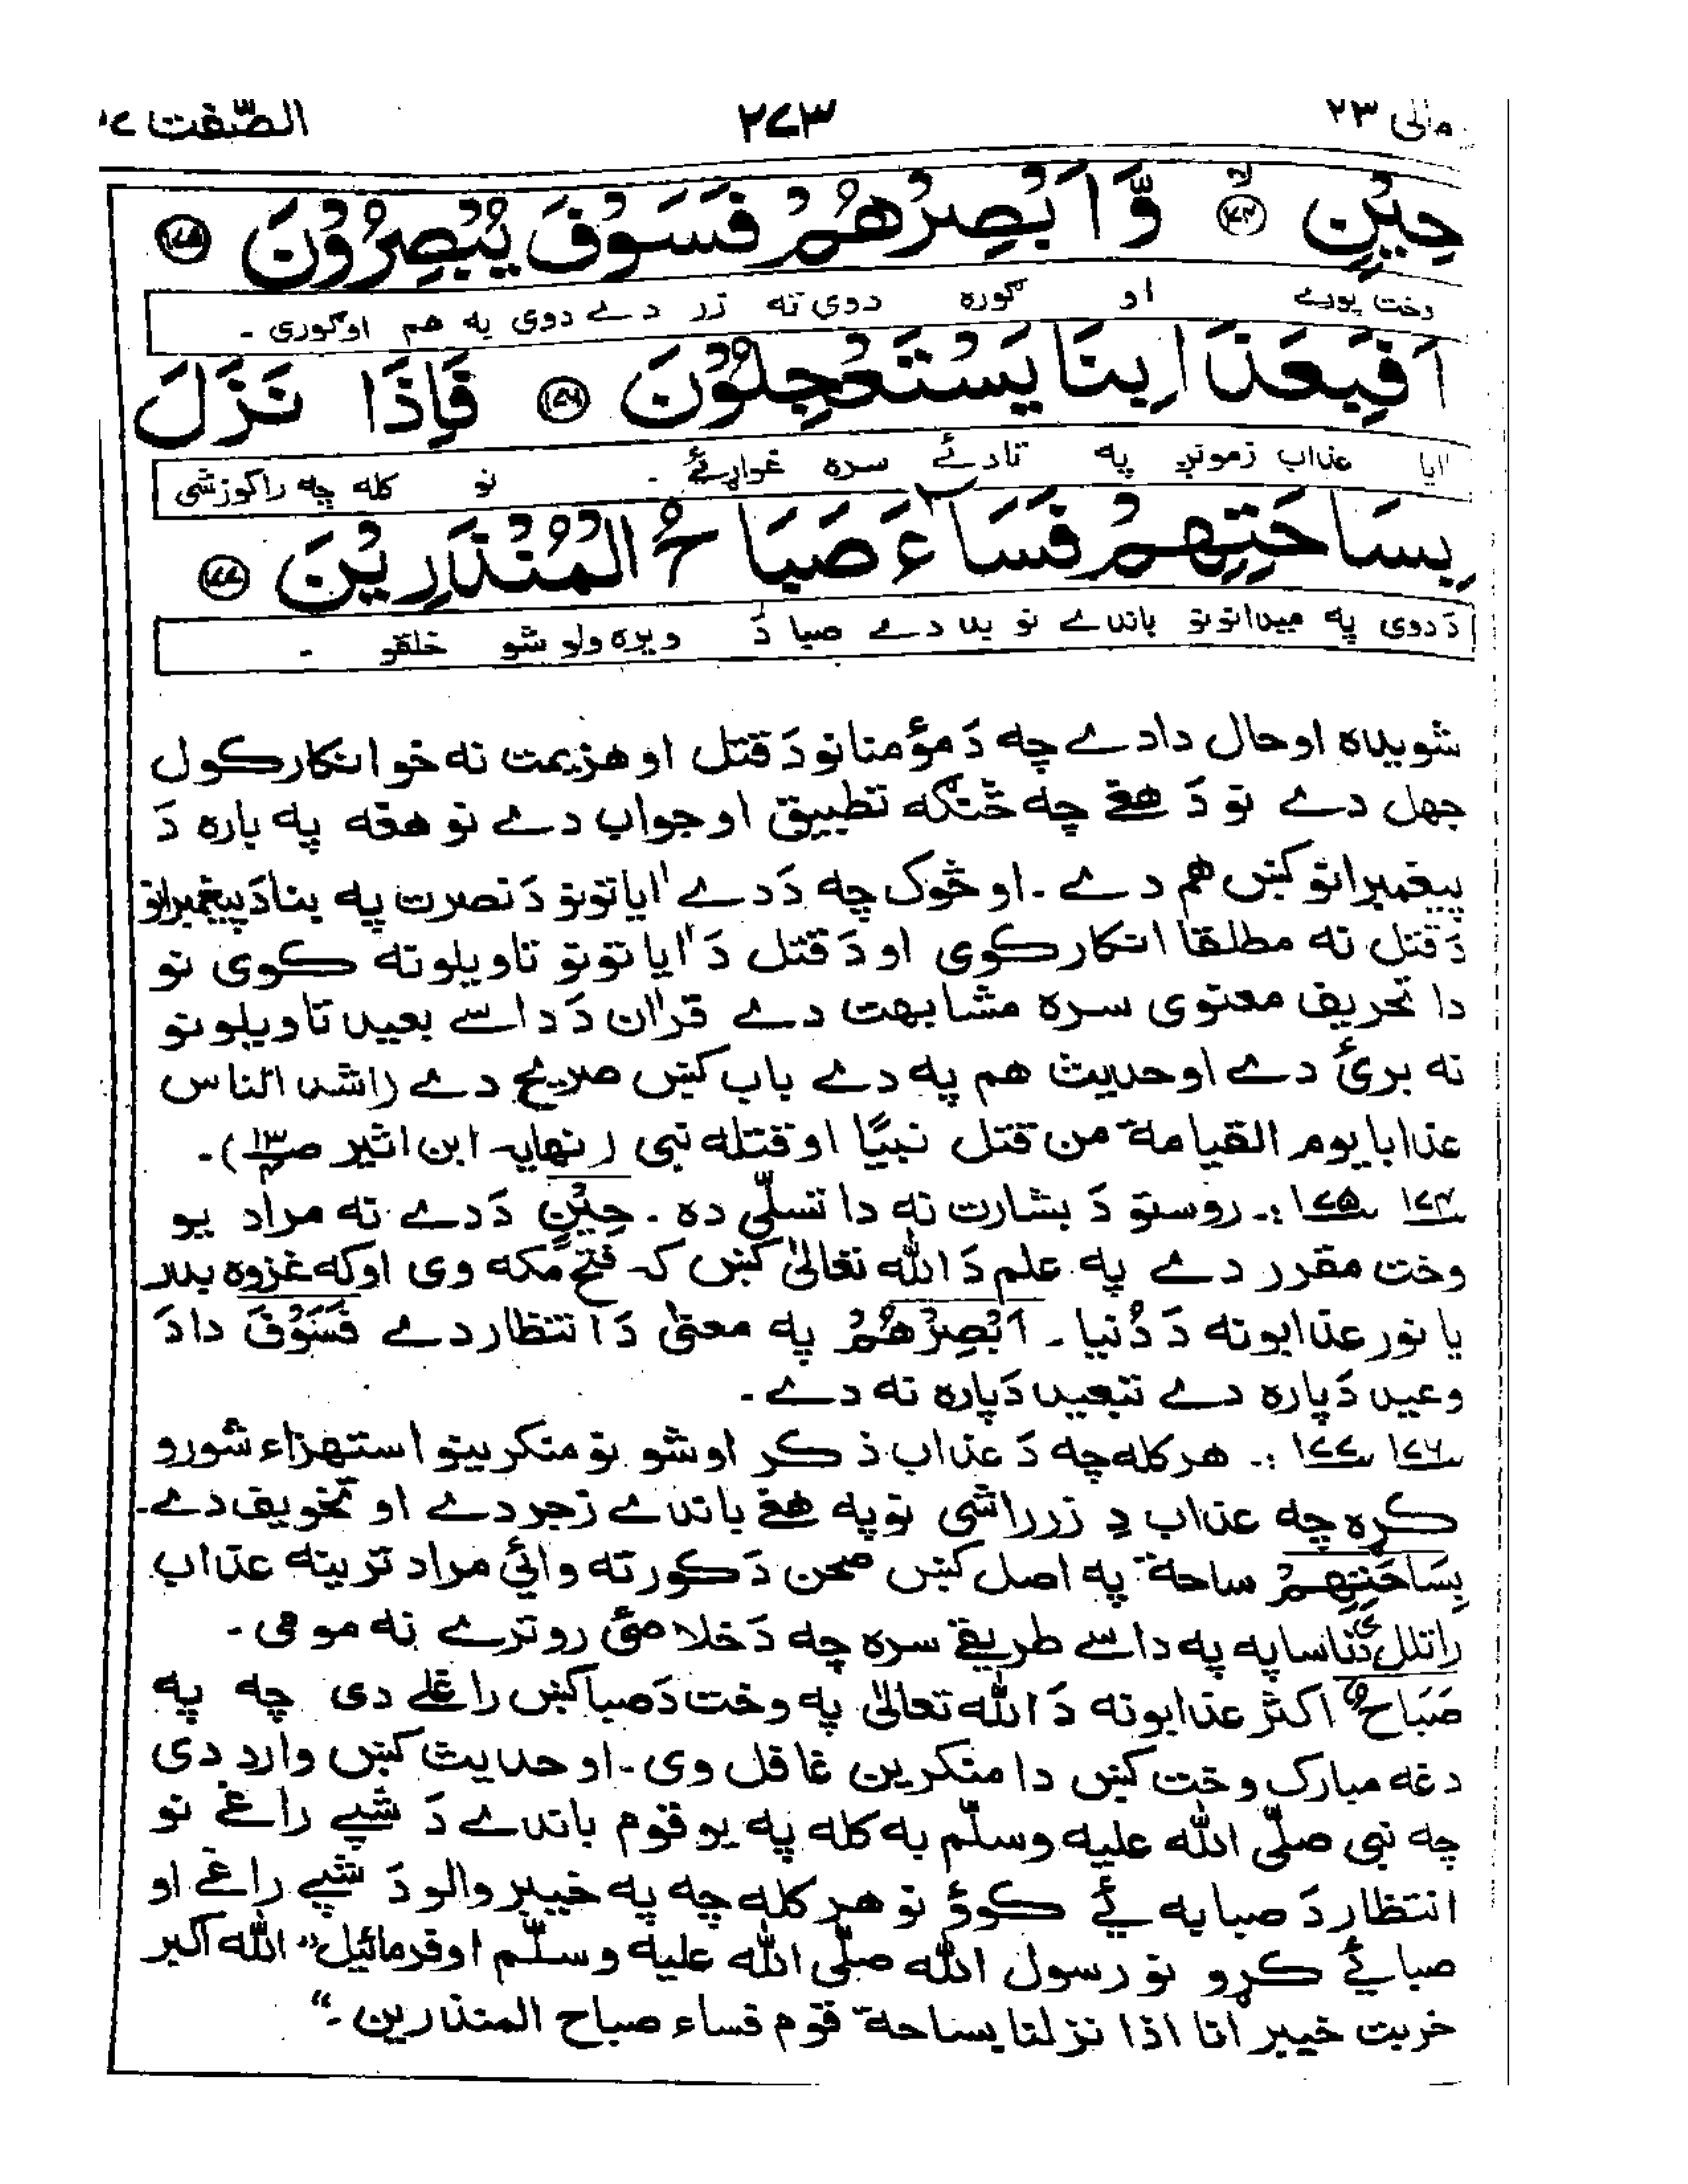 ومالی ۲۳ ۲۷۳ الصّٰفّٰت ۳۷
حِیْنٍ ﴿۱۷۴﴾ وَّاَبْصِرْهُمْ فَسَوْفَ یُبْصِرُوْنَ ﴿۱۷۵﴾
وخت پورے او ګوره دوی ته زر دے دوی به هم اوګوری ۔
اَفَبِعَذَابِنَا یَسْتَعْجِلُوْنَ ﴿۱۷۶﴾ فَاِذَا نَزَلَ
اٰیا عذاب زمونږ په تادئے سره غواړئے ۔ نو کله چه راکوزشی
بِسَاحَتِهِمْ فَسَآءَ صَبَاحُ الْمُنْذَرِیْنَ ﴿۱۷۷﴾
دَدوی په میدانونو باندے نو بد دے صبا دَ ویره ولو شو خلقو ۔
شویده او حال دادے چه دَ مؤمنانو دَ قتل او هزیمت نه خو انکار کول
جهل دے نو دَ هغے چه څنګه تطبیق او جواب دے نو هغه په باره دَ
پیغمبرانو کښ هم دے ۔ او څوک چه دَدے اٰیاتونو دَ نصرت په بنا دَ پیغمبرانو
دَ قتل نه مطلقا انکار کوی او دَ قتل دَ اٰیاتونو تاویلونه کوی نو
دا تحریف معنوی سره مشابهت دے قراٰن دَ داسے بعید تاویلونو
نه برئ دے او حدیث هم په دے باب کښ صریح دے (اشد الناس
عذابا یوم القیامة من قتل نبیًا او قتله نبی (نهایه ابن اثیر ص۱۳)۔
۱۷۴ ۱۷۵ :۔ روستو دَ بشارت نه دا تسلّی ده ۔ حِیْنٍ دَدے نه مراد یو
وخت مقرر دے په علم دَ الله تعالیٰ کښ که فتح مکه وی او که غزوه بدر
یا نور عذابونه دَ دُنیا ۔ اَبْصِرْهُمْ په معنیٰ دَ انتظار دے فَسَوْفَ دا دَ
وعید دَپاره دے تبعید دَپاره نه دے ۔
۱۷۶ ۱۷۷ :۔ هر کله چه دَ عذاب ذکر اوشو نو منکرینو استهزاء شورو
کړه چه عذاب دِ زر راشی نو په هغے باندے زجر دے او تخویف دے۔
بِسَاحَتِهِمْ ساحة په اصل کښ صحن دَ کور ته وائي مراد ترینه عذاب
راتلل دی ناساپه په داسے طریقے سره چه دَ خلاصئ رو ترے نه مومی ۔
صَبَاحُ اکثر عذابونه دَ الله تعالیٰ په وخت دَ صبا کښ راغلے دی چه په
دغه مبارک وخت کښ دا منکرین غافل وی ۔ او حدیث کښ وارد دی
چه نبی صلّی الله علیه وسلّم به کله په یو قوم باندے دَ شپے راغے نو
انتظار دَ صبا به ئے کوؤ نو هر کله چه په خیبر والو دَ شپے راغے او
صبا ئے کړو نو رسول الله صلّی الله علیه وسلّم اوفرمائیل "الله اکبر
خربت خیبر انا اذا نزلنا بساحة قوم فساء صباح المنذرین ۔"